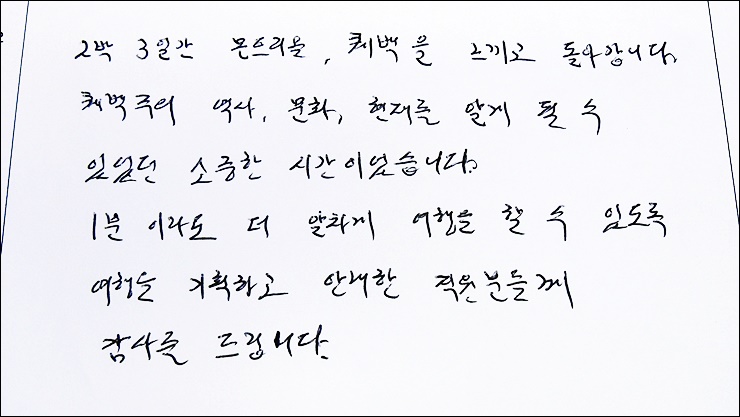 2박 3일간 몬트리올, 퀘백을 느끼고 돌아갑니다.
퀘백주의 역사, 문화, 현재를 알게 될 수
있었던 소중한 시간이었습니다.
1분이라도 더 알차게 여행을 할 수 있도록
여행을 기획하고 안내한 직원분들께
감사를 드립니다.